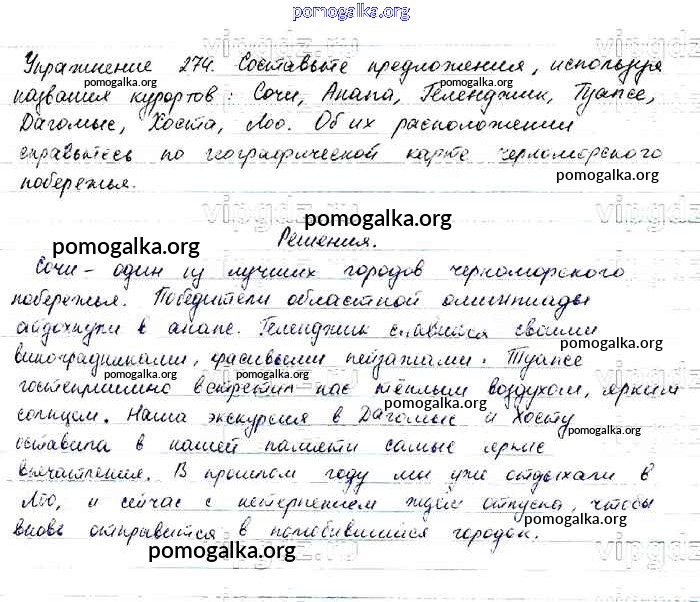 pomogalka.org
Упражнение 274. Составьте предложения, используя
pomogalka.org pomogalka.org
названия курортов: Сочи, Анапа, Геленджик, Туапсе,
Дагомыс, Хоста, Лоо. Об их расположении
pomogalka.org
справьтесь по географической карте черноморского
побережья.
pomogalka.org
pomogalka.org
Решения.
pomogalka.org
Сочи - один из лучших городов черноморского
побережья. Победители областной олимпиады
pomogalka.org
отдохнули в анапе. Геленджик славится своими
виноградниками, красивыми пейзажами. Туапсе
pomogalka.org pomogalka.org
гостеприимно встретил нас тёплым воздухом, ярким
солнцем. Наша экскурсия в Дагомыс и Хосту
pomogalka.org
оставила в нашей памяти самые яркие
впечатления. В прошлом году мы уже отдыхали в
Лоо, и сейчас с нетерпением ждём отпуска, чтобы
pomogalka.org
вновь отправится в полюбившийся городок.
pomogalka.org
vipgdz.ru